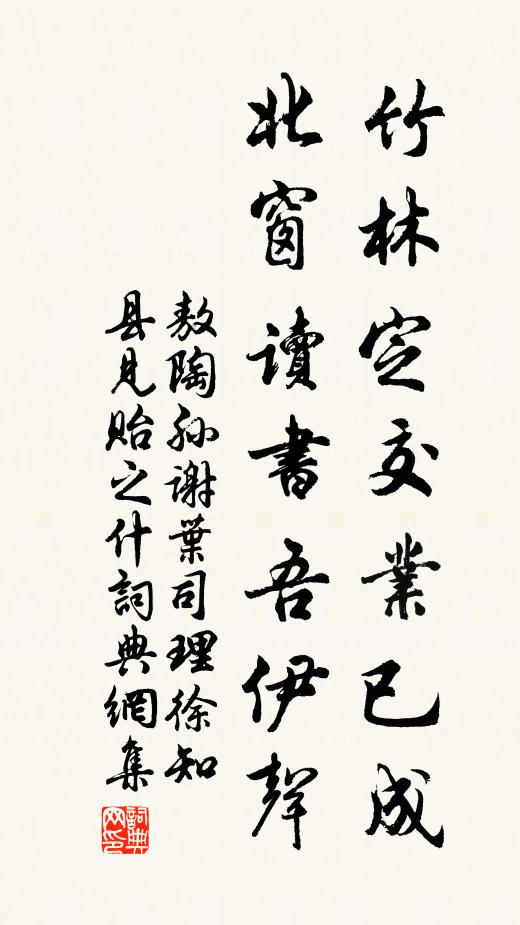 竹林定交業已成
北窗讀書吾伊聲
敖陶孙謝葉司理徐知
县見貽之什詞典網集
詞典网印